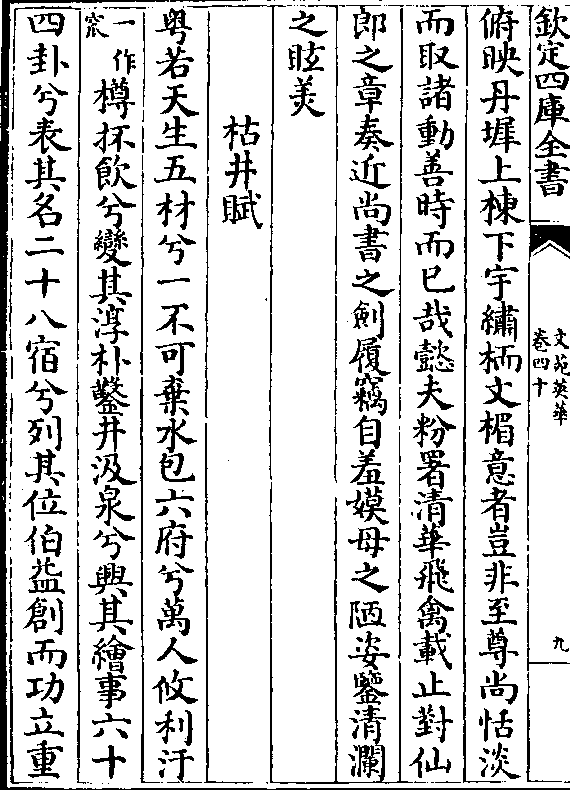 欽定四庫全書
文苑英華
卷四十
九
俯映丹墀上棟下宇繡栭文楣意者豈非至尊尚恬淡
而取諸動善時而已哉懿夫粉署清華飛禽載止對仙
郎之章奏近尚書之劍履竊自羞嫫母之陋姿鑒清瀾
之眩美
枯井賦
粤若天生五材兮一不可棄水包六府兮萬人攸利汙
一作窊樽抔飲兮變其淳朴鑿井汲泉兮興其繪事六十
四卦兮表其名二十八宿兮列其位伯益創而功立重